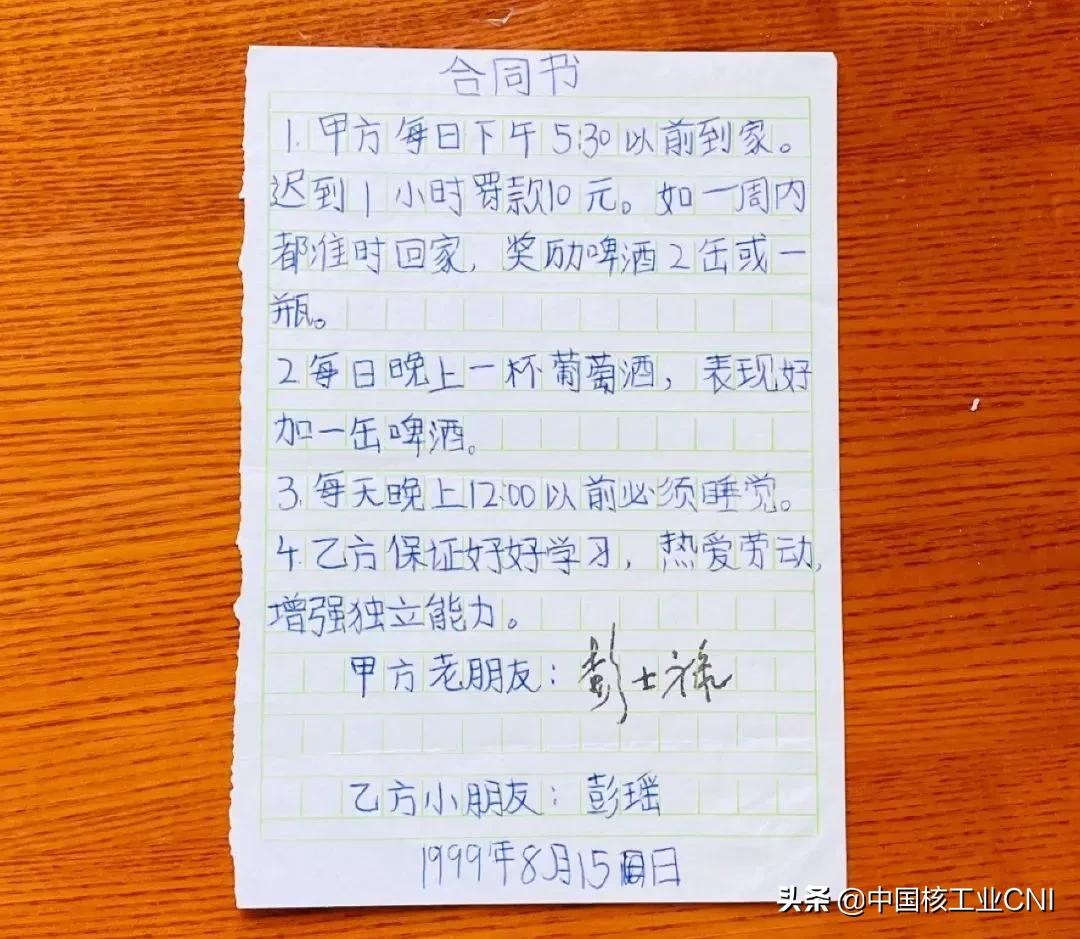 合同书
1. 甲方每日下午5:30以前到家。
迟到1小时罚款10元。如一周内
都准时回家，奖励啤酒2缶或一
瓶。
2.每日晚上一杯葡萄酒，表现好
加一缶啤酒。
3.每天晚上12:00以前必须睡觉。
4.乙方保证好好学习，热爱劳动，
增强独立能力。
甲方老朋友：彭士禄
乙方小朋友：彭瑶
1999年8月15日
头条 @中国核工业CNI